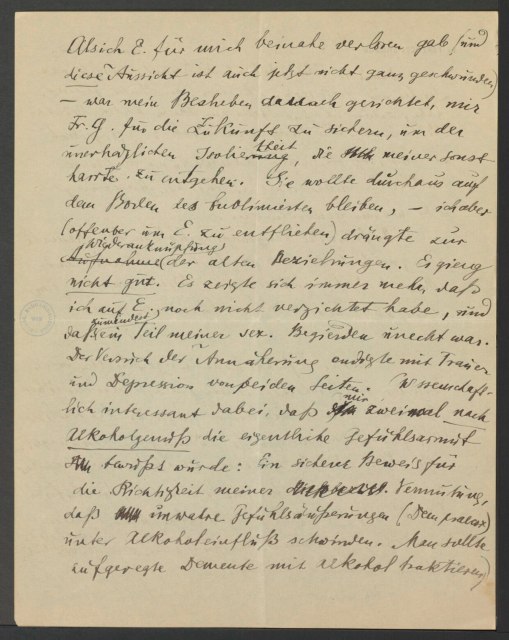 Als ich E. für mich beinahe verloren gab (und
diese Aussicht ist auch jetzt nicht ganz geschwunden)
— war mein Bestreben darnach gerichtet, mir
Fr. G. für die Zukunft zu sichern, um der
unerträglichen Isoliertheit, die meiner sonst
harrte zu entgehen. Sie wollte durchaus auf
dem Boden des Sublimierten bleiben, — ich aber
(offenbar um E. zu entfliehen) drängte zur
Wiederanknüpfung
Aufnahme der alten Beziehungen. Es gieng
nicht gut. Es zeigte sich immer mehr, daß
ich auf E. noch nicht verzichtet habe, und
daß zumindest ein Teil meiner sex. Begierden unecht war.
Der Versuch der Annäherung endigte mit Trauer
und Depression von beiden Seiten. Wissenschaft-
lich interessant dabei, daß mir zweimal nach
Alkoholgenuß die eigentliche Gefühlsarmut
bewußt wurde: Ein sicherer Beweis für
die Richtigkeit meiner Vermutung,
daß unwahre Gefühlsäußerungen (Dem. praecox)
unter Alkoholeinfluß schwinden. Man sollte
aufgeregte Demente mit Alkohol traktieren)